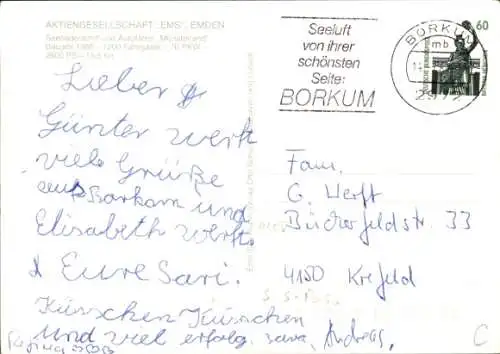 AKTIENGESELLSCHAFT "EMS", EMDEN
Seebäderschiff und Autofähre "Münsterland"
Baujahr 1986 - 1200 Fahrgäste - 70 PKW
Seeluft
von ihrer
schönsten
Seite:
BORKUM
BORKUM
mb
2972
60
Lieber
Günter werft
viele Grüße
aus Borkam und
Elisabeth werft.
Eure Sari.
Küsschen Küsschen
und viel erfolg. Sara, Andreas,
Regina
Fam.
G. Werft
Bücherfeldstr. 33
4150 Krefeld
C